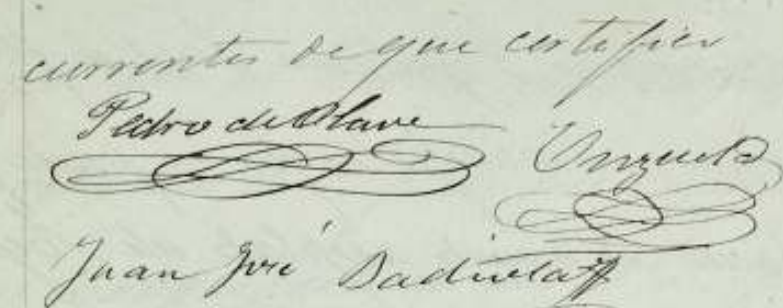 currentes de que certifico
Pedro de Olave
Unzueta
Juan José Badiola